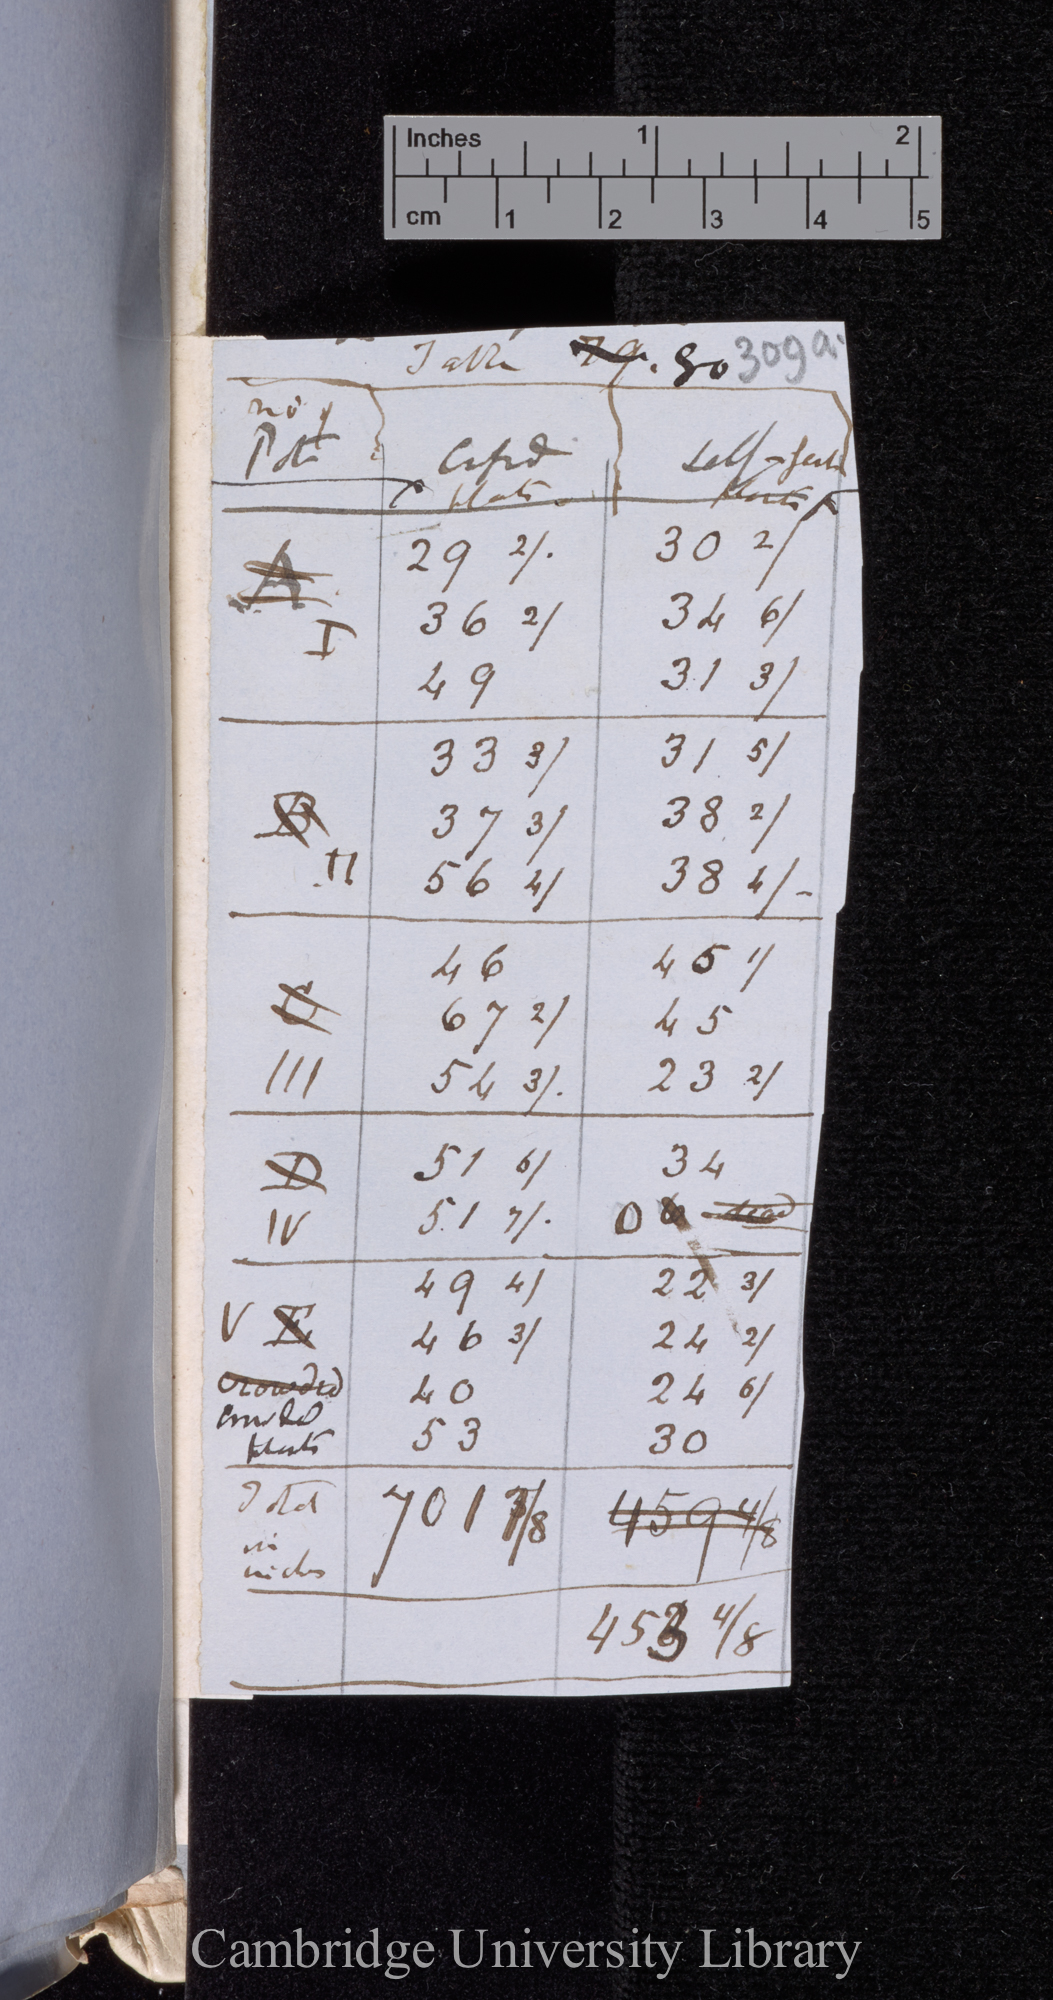 Inches 1 2
cm 1 2 3 4 5
Table 79. 80 309a.
No of
Pots
Crossed
plants
Self-fert
plants
A I
29 2/. 30 2/
36 2/ 34 6/
49 31 3/
B II
33 3/ 31 5/
37 3/ 38 2/
56 4/ 38 4/-
C III
46 45 1/
67 2/ 45
54 3/. 23 2/
D IV
51 6/ 34
51 7/. 0 dead
V E
49 4/ 22 3/
46 3/ 24 2/
crowded
crowded
plants
40 24 6/
53 30
Total
in
inches
701 7/8 459 4/8
453 4/8
Cambridge University Library